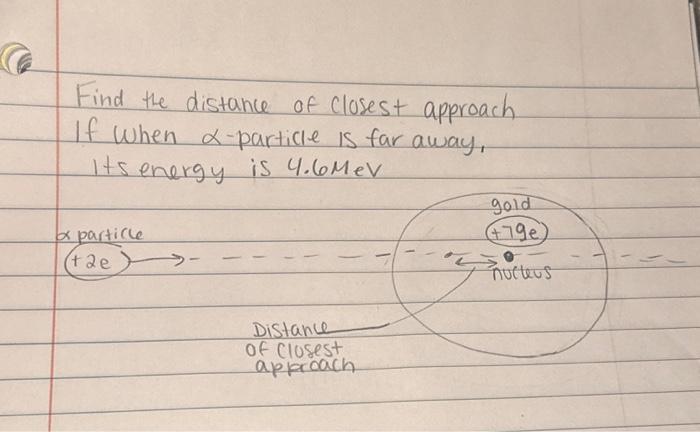 Find the distance of closest approach
If when α-particle is far away,
its energy is 4.6MeV
gold
α particle
+79e
+2e
nucleus
Distance
of closest
approach